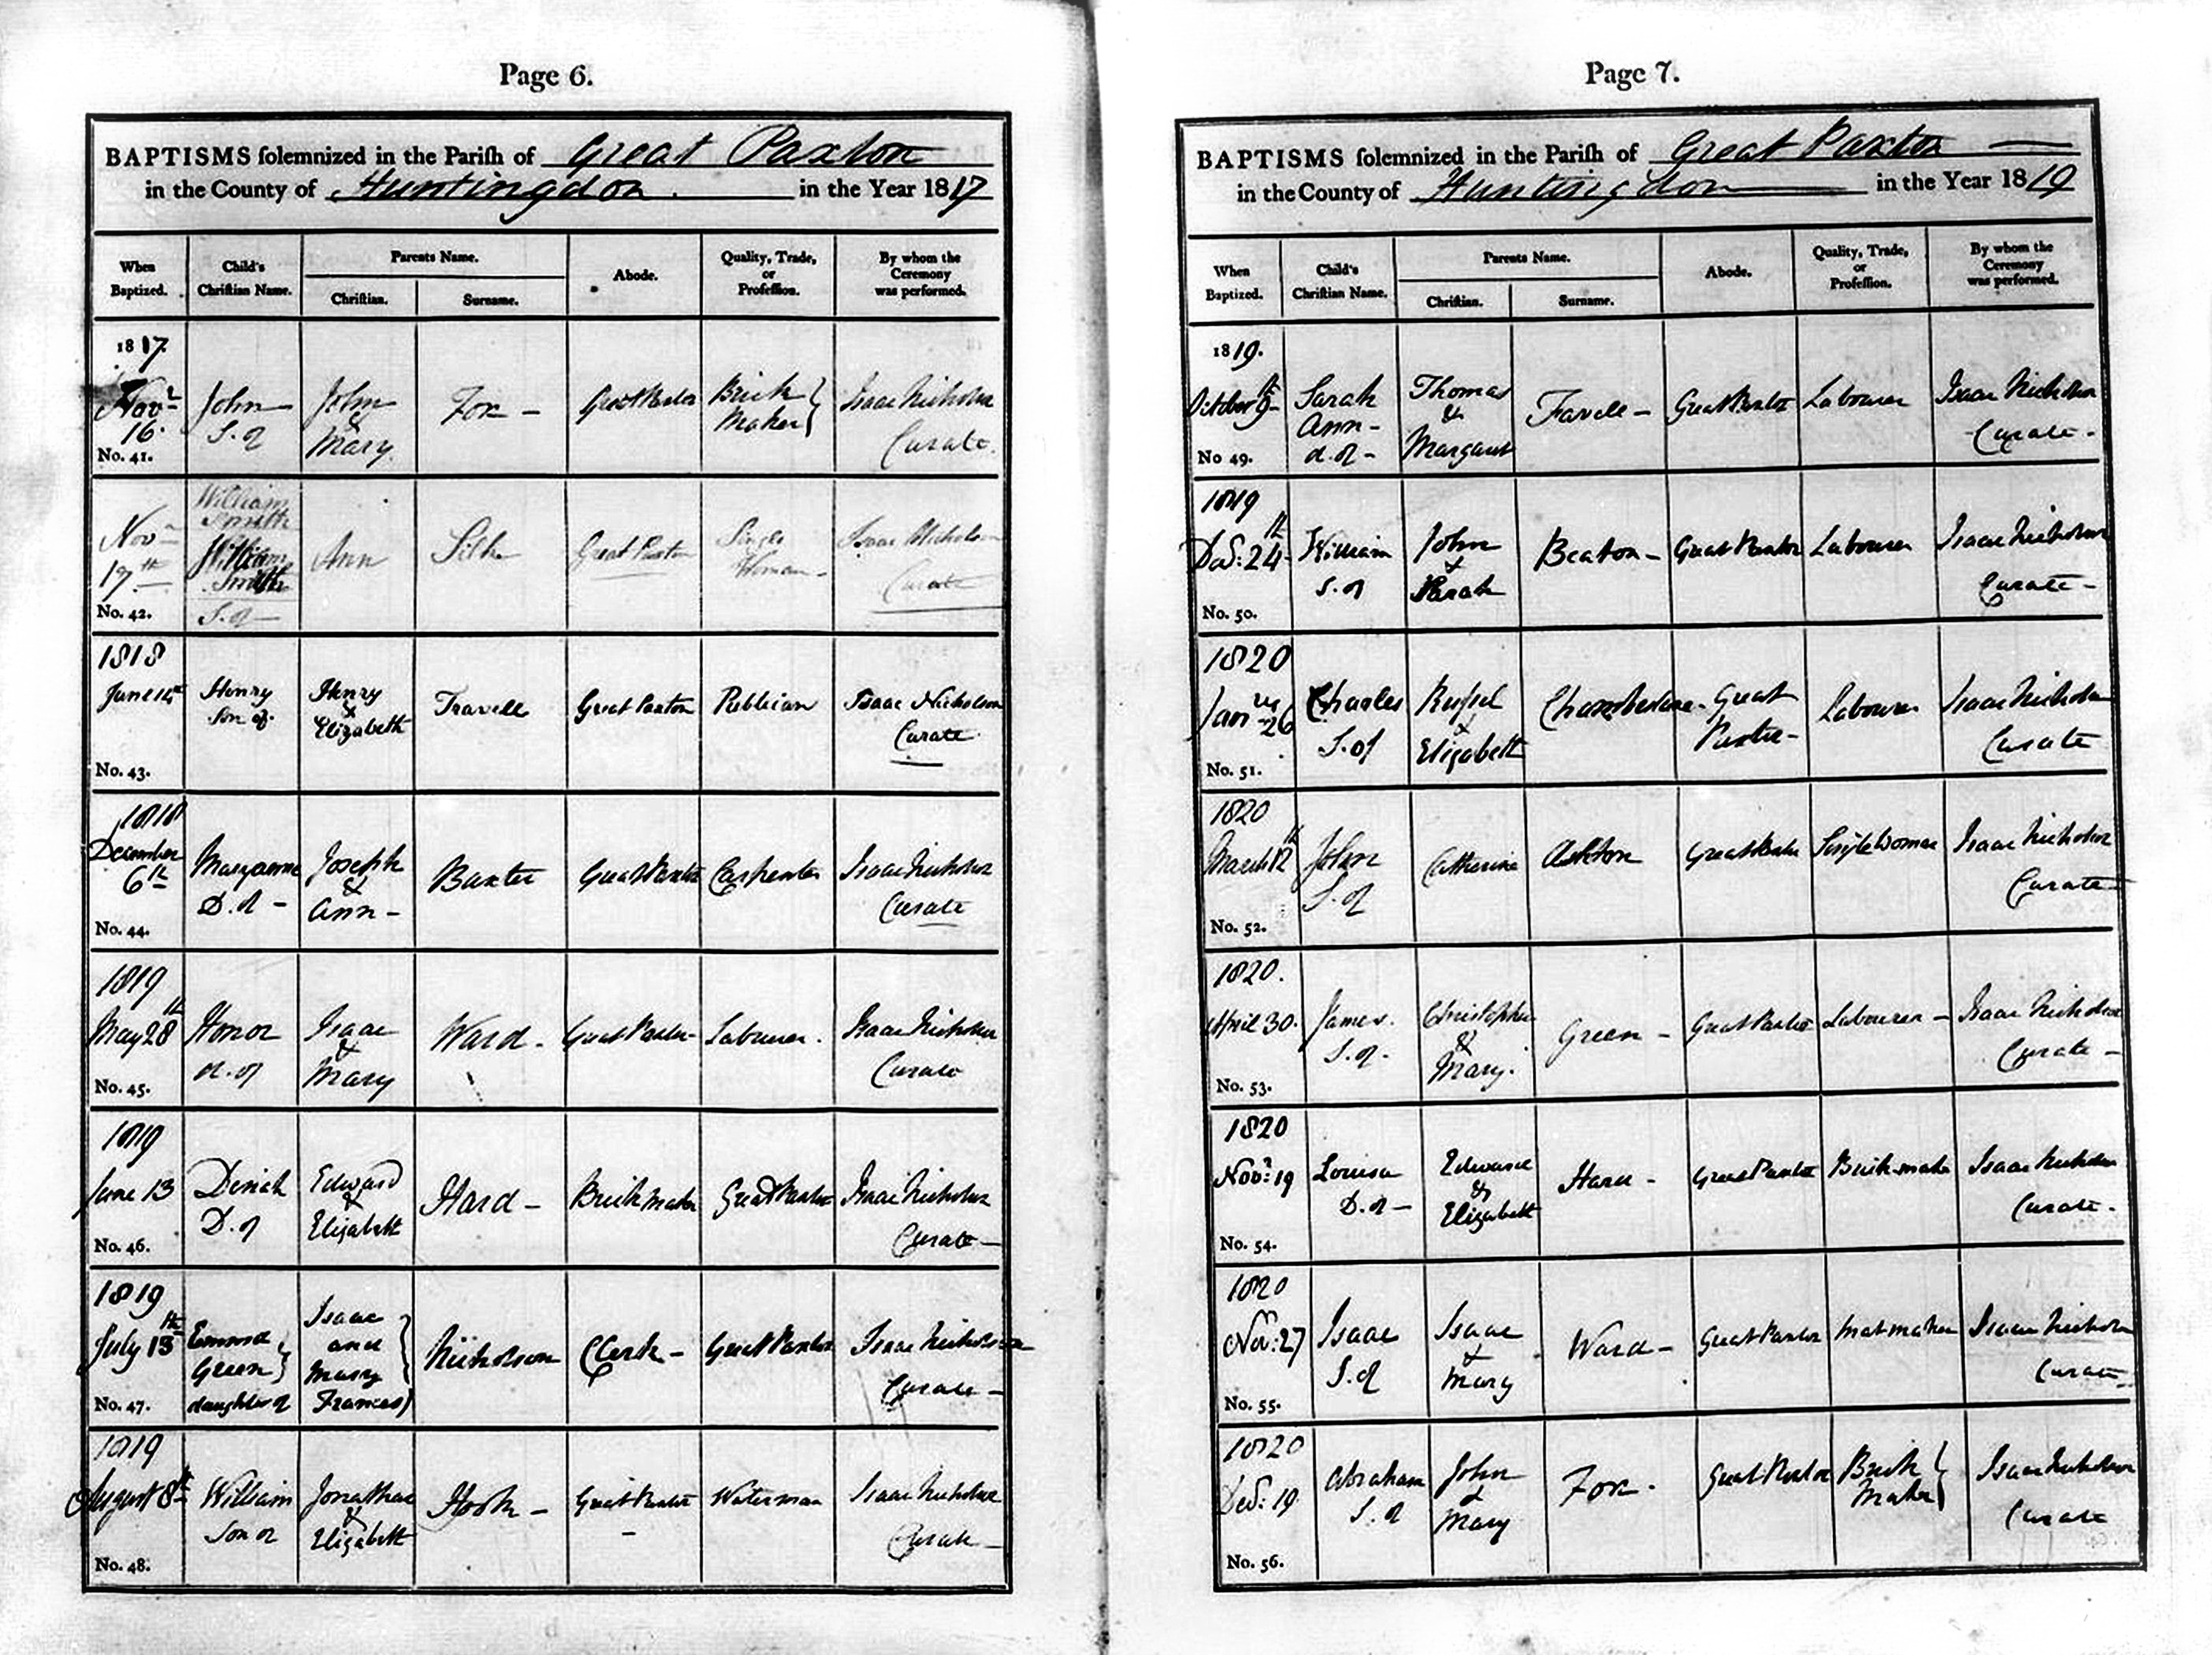 Page 6.
BAPTISMS solemnized in the Parish of Great Paxton
in the County of Huntingdon. in the Year 1817
When Baptized. Child's Christian Name. Parents Name. Christian. Surname. Abode. Quality, Trade, or Profession. By whom the Ceremony was performed.
1817. Novr 16. No. 41. John S. of John & Mary Fox - Great Paxton Brick Maker Isaac Nicholson Curate.
Nov 17th No. 42. William Smith William Smith S. of Ann Great Paxton Single Woman - Isaac Nicholson Curate
1818 June No. 43. Henry Son of Henry & Elizabeth Great Paxton Publican Isaac Nicholson Curate.
1818 December 6th No. 44. Maryanne D. of - Joseph & Ann - Baxter Great Paxton Carpenter Isaac Nicholson Curate
1819 May 28th No. 45. Honor d. of Isaac & Mary Ward - Great Paxton - Labourer. Isaac Nicholson Curate
1819 June 13 No. 46. Dinah D. of Edward & Elizabeth Hard - Brickmaker Great Paxton Isaac Nicholson Curate -
1819 July 13th No. 47. Emma Green daughter of Isaac and Mary Frances Nicholson Clerk - Great Paxton Isaac Nicholson Curate -
1819 August 8th No. 48. William Son of Jonathan & Elizabeth Hook - Great Paxton - Waterman Isaac Nicholson Curate -
Page 7.
BAPTISMS solemnized in the Parish of Great Paxton
in the County of Huntingdon in the Year 1819
When Baptized. Child's Christian Name. Parents Name. Christian. Surname. Abode. Quality, Trade, or Profession. By whom the Ceremony was performed.
1819. October No 49. Sarah Ann - d. of - Thomas & Margaret Favell - Great Paxton Labourer Isaac Nicholson Curate -
1819 Dec: 24th No. 50. William S. of John & Sarah Beaton - Great Paxton Labourer Isaac Nicholson Curate -
1820 Janry 26 No. 51. Charles S. of Elizabeth Chamberlane - Great Paxton - Labourer Isaac Nicholson Curate
1820 March 12th No. 52. John S. of Catherine Ashton Great Paxton Single Woman Isaac Nicholson Curate
1820. April 30. No. 53. James. S. of - Christopher & Mary. Green - Great Paxton Labourer - Isaac Nicholson Curate -
1820 Novr: 19 No. 54. Louisa D. of - Edward & Elizabeth Hard - Great Paxton Brickmaker Isaac Nicholson Curate -
1820 Nov: 27 No. 55. Isaac S. of Isaac & Mary Ward - Great Paxton Matmaker Isaac Nicholson Curate -
1820 Dec: 19 No. 56. Abraham S. of John & Mary Fox - Great Paxton Brick Maker Isaac Nicholson Curate